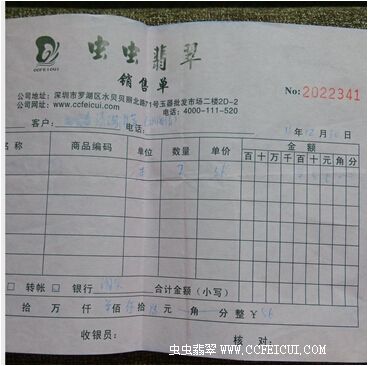 CCFEICUI
虫虫翡翠
销售单
公司地址：深圳市罗湖区水贝贝丽北路71号玉器批发市场二楼2D-2
公司网址：www.ccfeicui.com 电话：4000-111-520
No: 2022341
客户： 电话： 月 日
名称 商品编码 单位 数量 单价 金额
百 十 万 千 百 十 元 角 分
转帐 □ 银行 □ 合计金额（小写）
拾 万 仟 佰 拾 元 角 分 整 ¥
收银员： 核 对：
虫虫翡翠 www.CCFEICUI.COM